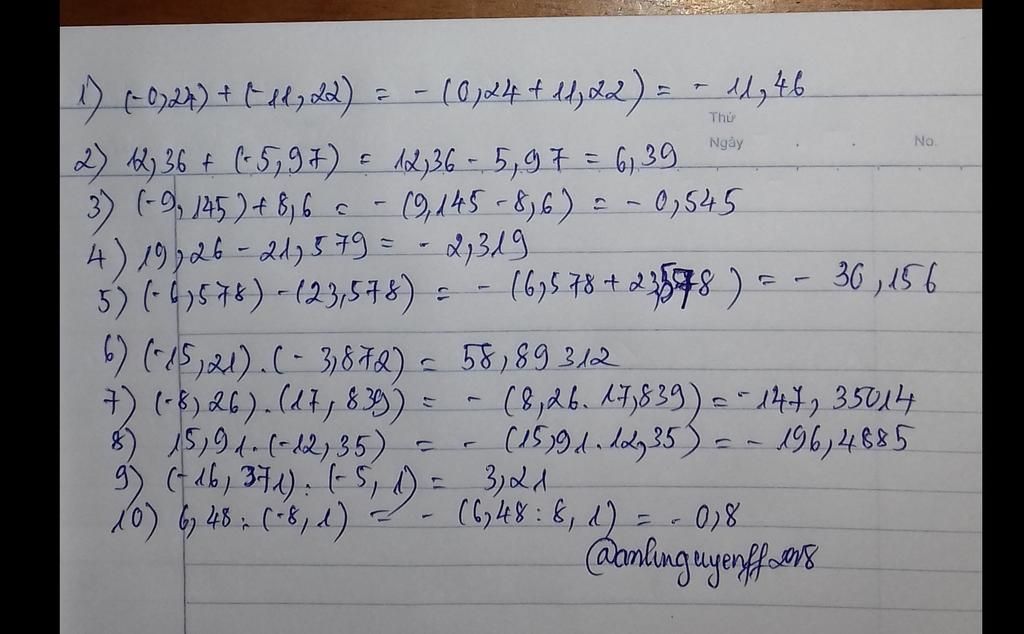 1) (-0,24) + (-11,22) = - (0,24 + 11,22) = - 11,46
Thứ
Ngày . . No.
2) 12,36 + (-5,97) = 12,36 - 5,97 = 6,39
3) (-9,145) + 8,6 = - (9,145 - 8,6) = - 0,545
4) 19,26 - 21,579 = - 2,319
5) (-6,578) - (23,578) = - (6,578 + 23,578) = - 30,156
6) (-15,21) . (-3,872) = 58,89312
7) (-8,26) . (17,839) = - (8,26 . 17,839) = -147,35014
8) 15,91 . (-12,35) = - (15,91 . 12,35) = - 196,4885
9) (-16,371) : (-5,1) = 3,21
10) 6,48 : (-8,1) = - (6,48 : 8,1) = - 0,8